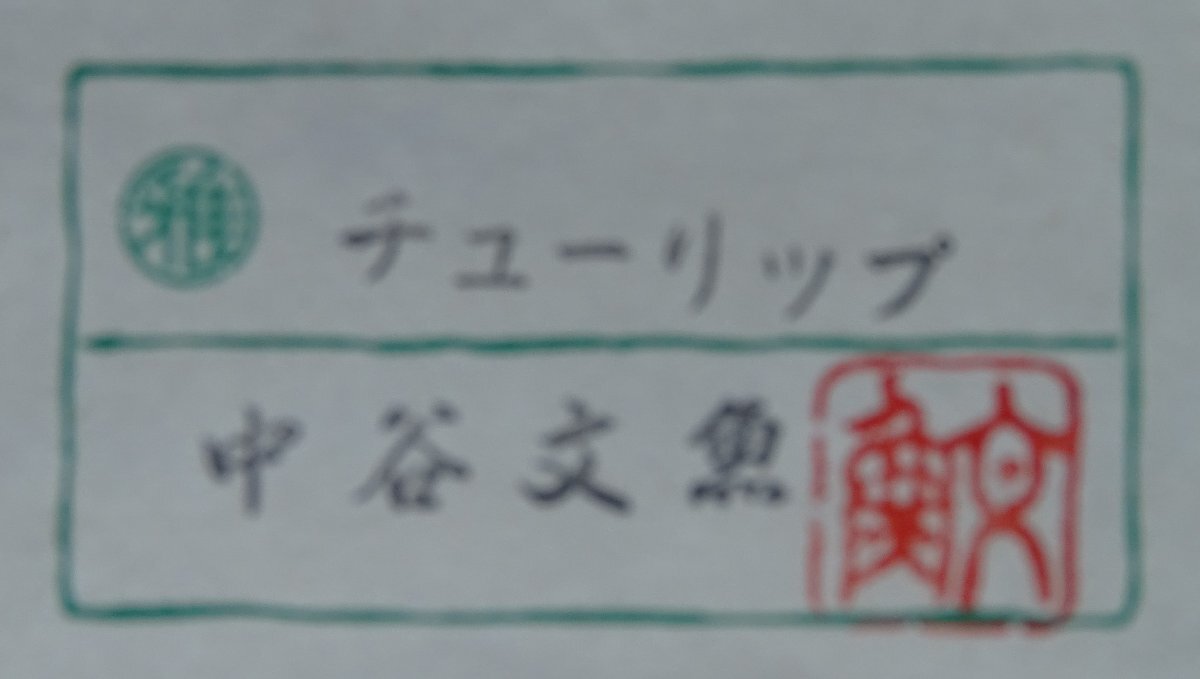 チューリップ
中谷文魚
文魚